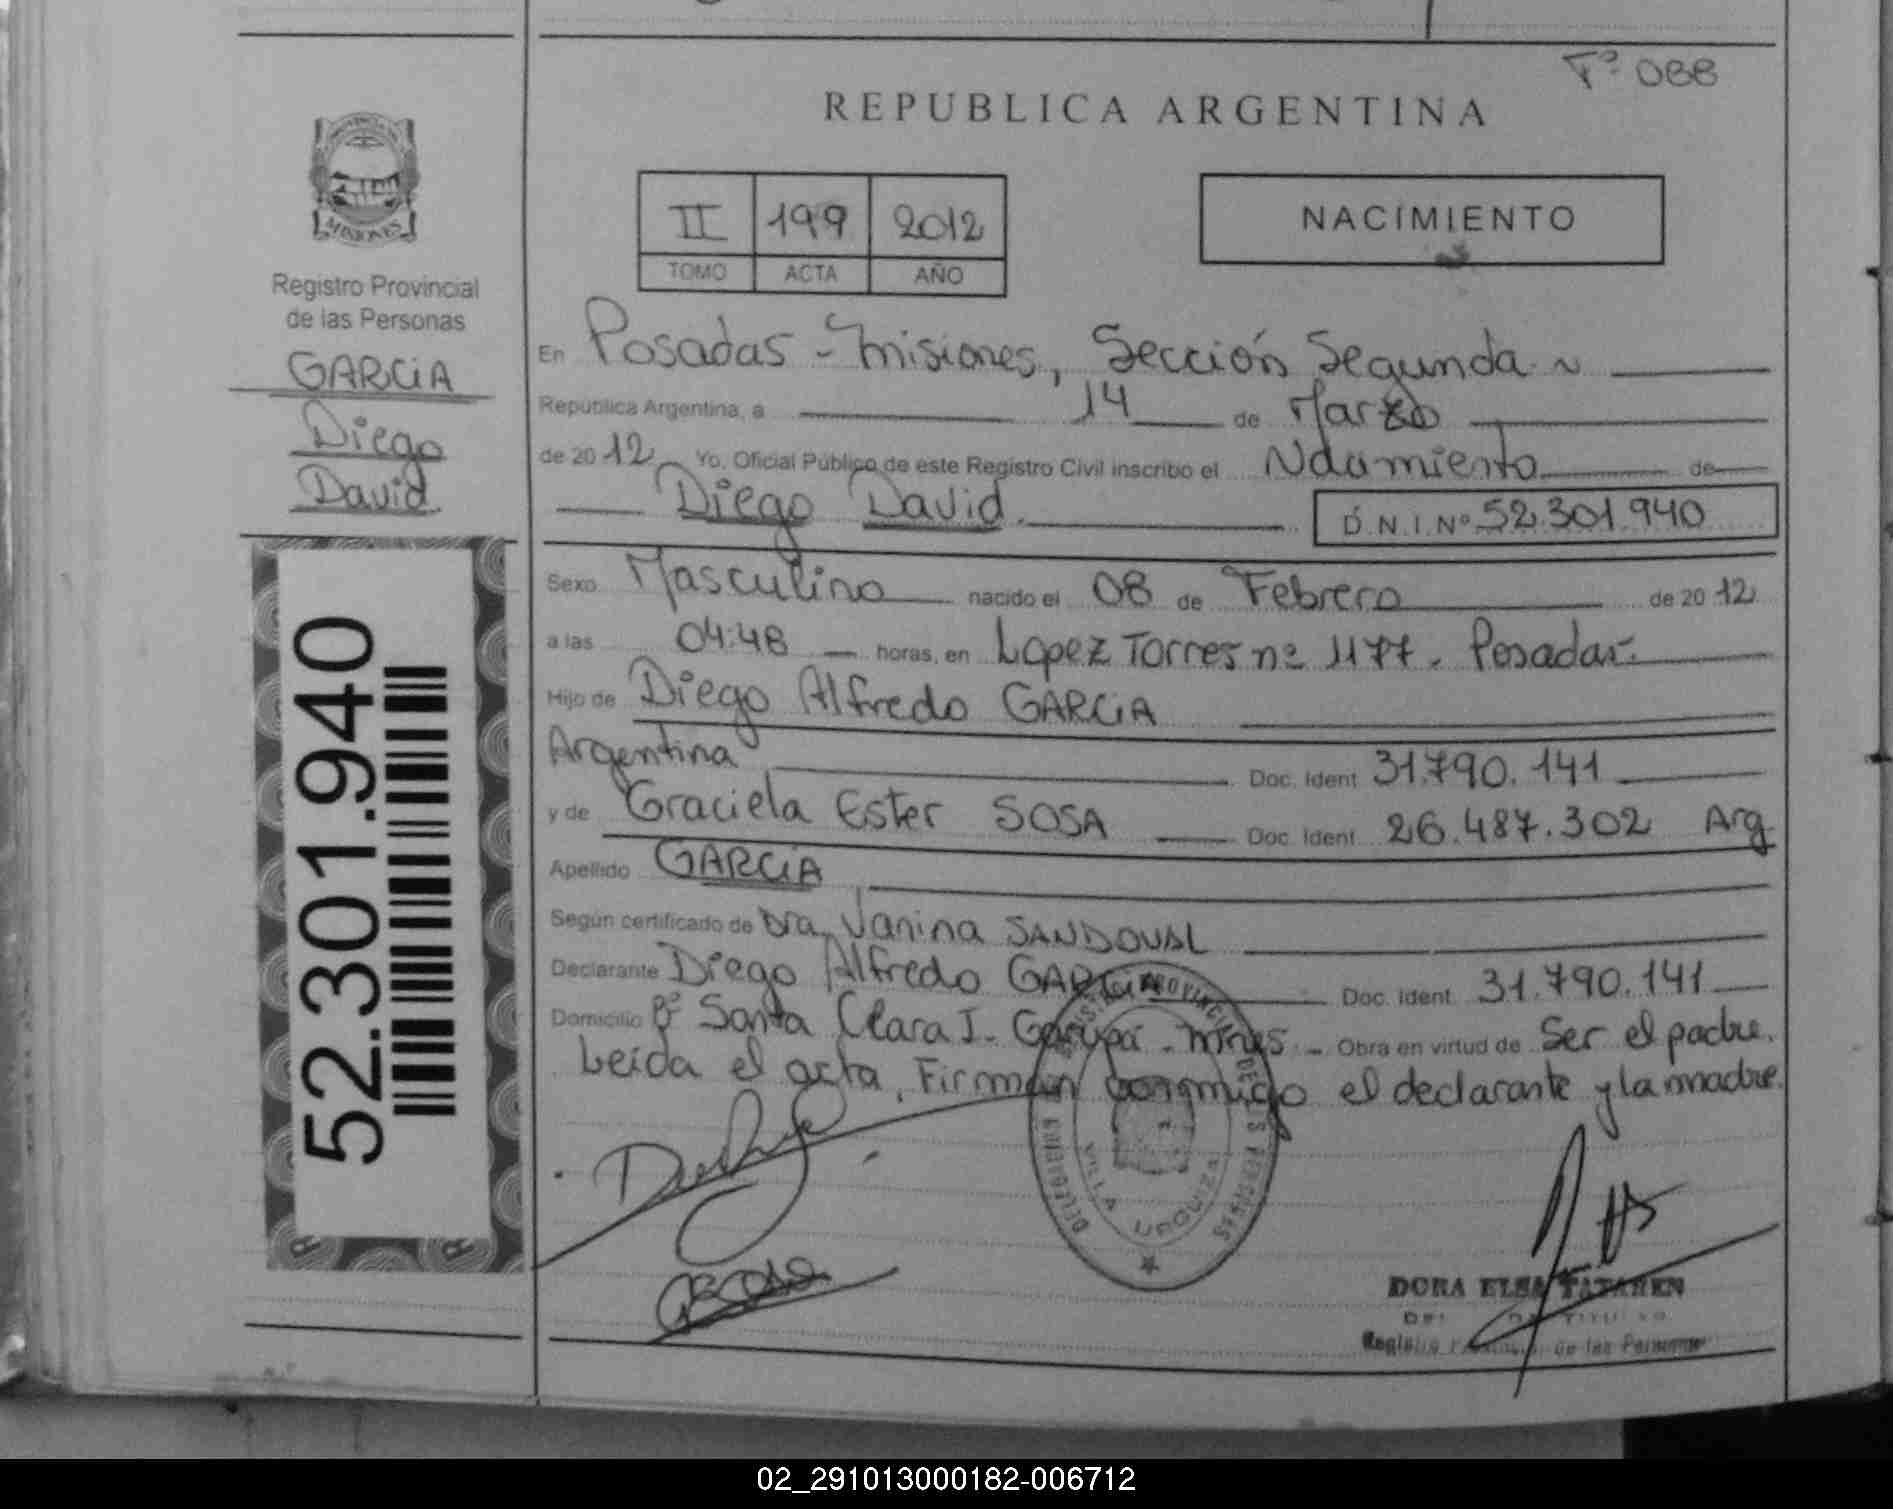 Fº 088
REPUBLICA ARGENTINA
PROVINCIA DE
MISIONES
Registro Provincial
de las Personas
GARCiA
Diego
David
II 199 2012
TOMO ACTA AÑO
NACIMIENTO
En Posadas - Misiones, Sección Segunda
República Argentina, a 14 de Marzo
de 2012 Yo, Oficial Público de este Registro Civil inscribo el Nacimiento de
Diego David. D.N.I. Nº 52.301.940
Sexo Masculino nacido el 08 de Febrero de 2012
a las 04:48 horas, en Lopez Torres nº 1177. Posadas.
Hijo de Diego Alfredo GARCiA
Argentina Doc. Ident 31.790.141
y de Graciela Ester SOSA Doc. Ident 26.487.302 Arg
Apellido GARCiA
Según certificado de Dra. Vanina SANDOVAL
Declarante Diego Alfredo GARCiA Doc. Ident 31.790.141
Domicilio Bº Santa Clara I - Garupá - Mnes - Obra en virtud de Ser el padre.
Leida el acta, Firman conmigo el declarante y la madre.
52.301.940
REGISTRO PROVINCIAL DE LAS PERSONAS
DELEGACION
VILLA URQUIZA
DORA ELSA TATAREN
Registro Provincial de las Personas
02_291013000182-006712